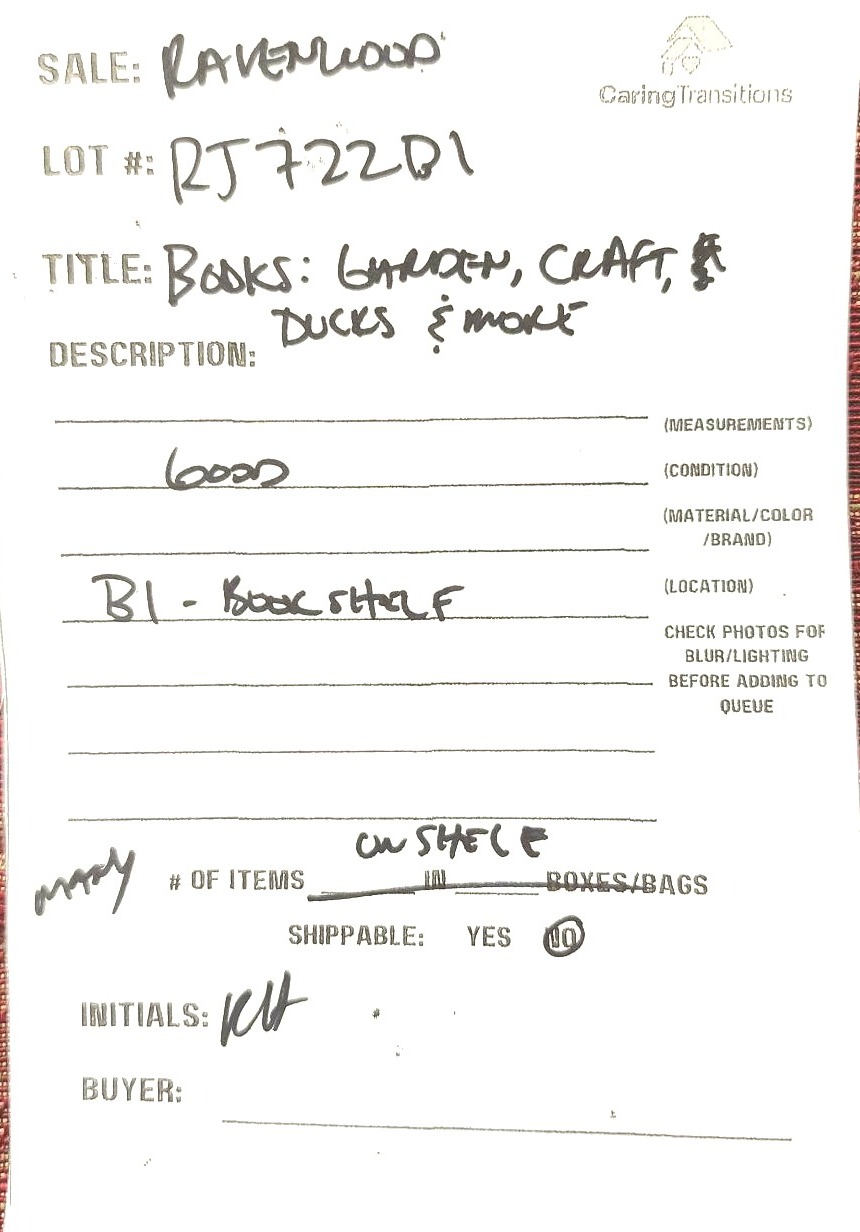 SALE: RAVENWOOD
CaringTransitions
LOT #: RJ722D1
TITLE: BOOKS: GARDEN, CRAFT,
DUCKS & MORE
DESCRIPTION:
(MEASUREMENTS)
GOOD (CONDITION)
(MATERIAL/COLOR
/BRAND)
B1 - BOOKSHELF (LOCATION)
CHECK PHOTOS FOR
BLUR/LIGHTING
BEFORE ADDING TO
QUEUE
ON SHELF
MANY # OF ITEMS IN BOXES/BAGS
SHIPPABLE: YES NO
INITIALS: KH
BUYER: